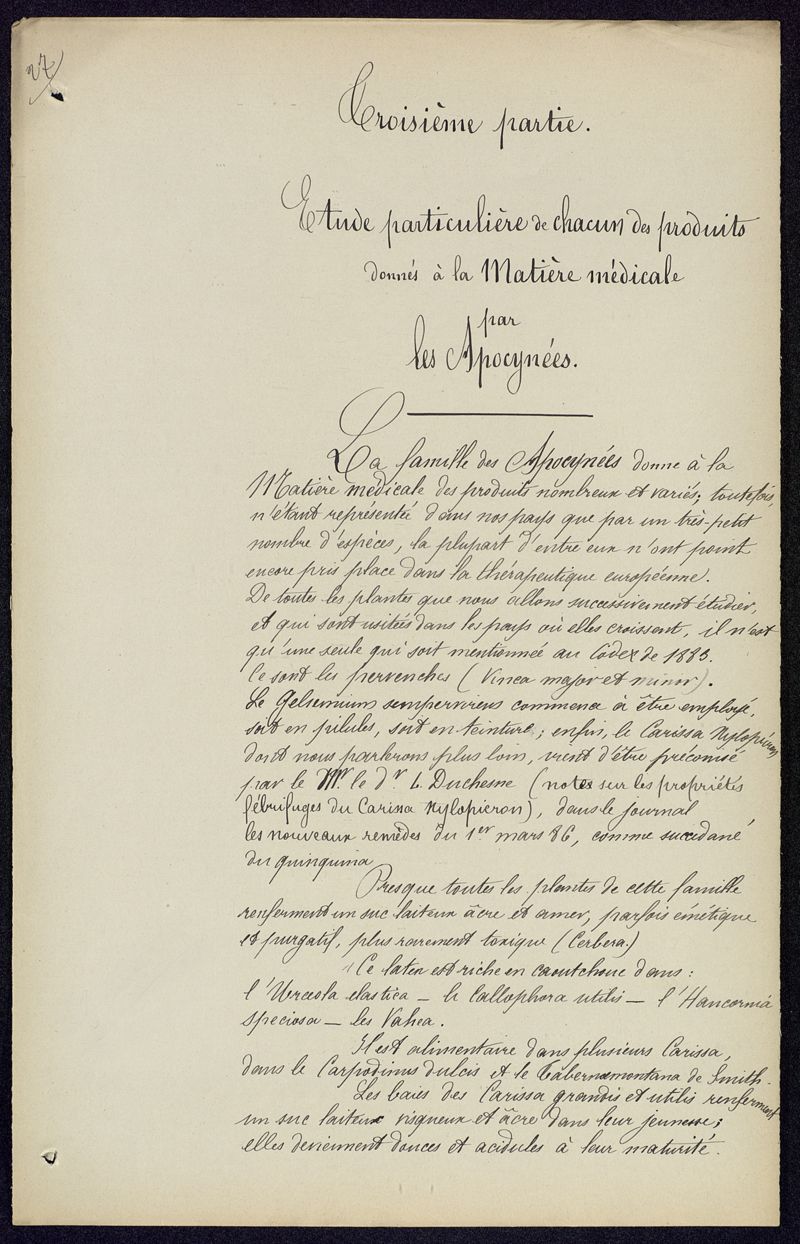 27
Troisième partie.
Etude particulière de chacun des produits
donnés à la Matière médicale
par
les Apocynées.
La famille des Apocynées donne à la
Matière médicale des produits nombreux et variés; toutefois,
n'étant représentée dans nos pays que par un très-petit
nombre d'espèces, la plupart d'entre eux n'ont point
encore pris place dans la thérapeutique européenne.
De toutes les plantes que nous allons successivement étudier,
et qui sont usitées dans les pays où elles croissent, il n'est
qu'une seule qui soit mentionnée au Codex de 1883.
Ce sont les pervenches (Vinca major et minor).
Le Gelsemium sempervirens commence à être employé,
soit en pilules, soit en teinture; enfin, le Carissa Xylopicron
dont nous parlerons plus loin, vient d'être préconisé
par le Mr. le dr. L. Duchesne (notes sur les propriétés
fébrifuges du Carissa Xylopicron), dans le journal
les nouveaux remèdes du 1er mars 86, comme succédané
du quinquina
Presque toutes les plantes de cette famille
renferment un suc laiteux âcre et amer, parfois émétique
et purgatif, plus rarement toxique (Cerbera.)
Ce latex est riche en caoutchouc dans:
l'Urceola elastica – le Callophora utilis – l'Hancornia
speciosa – les Vahea.
Il est alimentaire dans plusieurs Carissa,
dans le Carpodinus dulcis et le Tabernæmontana de Smith.
Les baies des Carissa grandis et utilis renferment
un suc laiteux visqueux et âcre dans leur jeunesse;
elles deviennent douces et acidules à leur maturité.